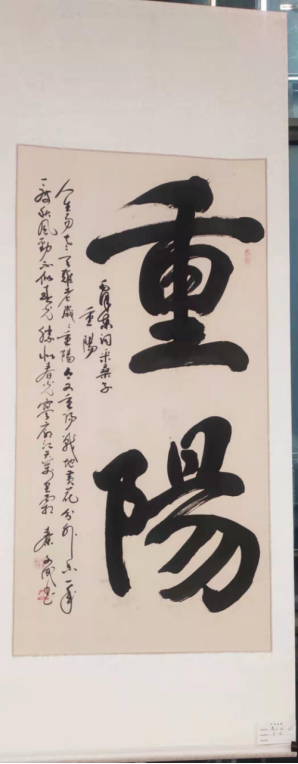 重陽
毛澤東詞采桑子
重陽
人生易老天難老歲歲重陽今又重陽戰地黃花分外香一年
一度秋風勁不似春光勝似春光寥廓江天萬里霜